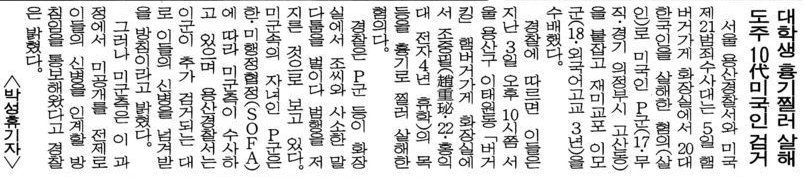 대학생 흉기찔러 살해
도주 10代미국인 검거
서울 용산경찰서와 미국
제21범죄수사대는 5일 햄
버거가게 화장실에서 20대
한국인을 살해한 혐의(살
인)로 미국인 P군(17·무
직·경기 의정부시 고산동)
을 붙잡고 재미교포 이모
군(18·외국어고교 3년)을
수배했다.
경찰에 따르면 이들은
지난 3일 오후 10시쯤 서
울 용산구 이태원동 「버거
킹」 햄버거가게 화장실에
서 조중필(趙重珌·22·홍익
대 전자4년 휴학)의 목
등을 흉기로 찔러 살해한
혐의다.
경찰은 P군 등이 화장
실에서 조씨와 사소한 말
다툼을 벌이다 범행을 저
지른 것으로 보고 있다.
미군속의 자녀인 P군은
한·미행정협정(SOFA)
에 따라 미군측이 수사하
고 있으며 용산경찰서는
이군이 추가 검거되는 대
로 이들의 신병을 넘겨받
을 방침이라고 밝혔다.
그러나 미군측은 이 과
정에서 미공개를 전제로
이들의 신병을 인계할 방
침임을 통보해왔다고 경찰
은 밝혔다.
<박성휴기자>